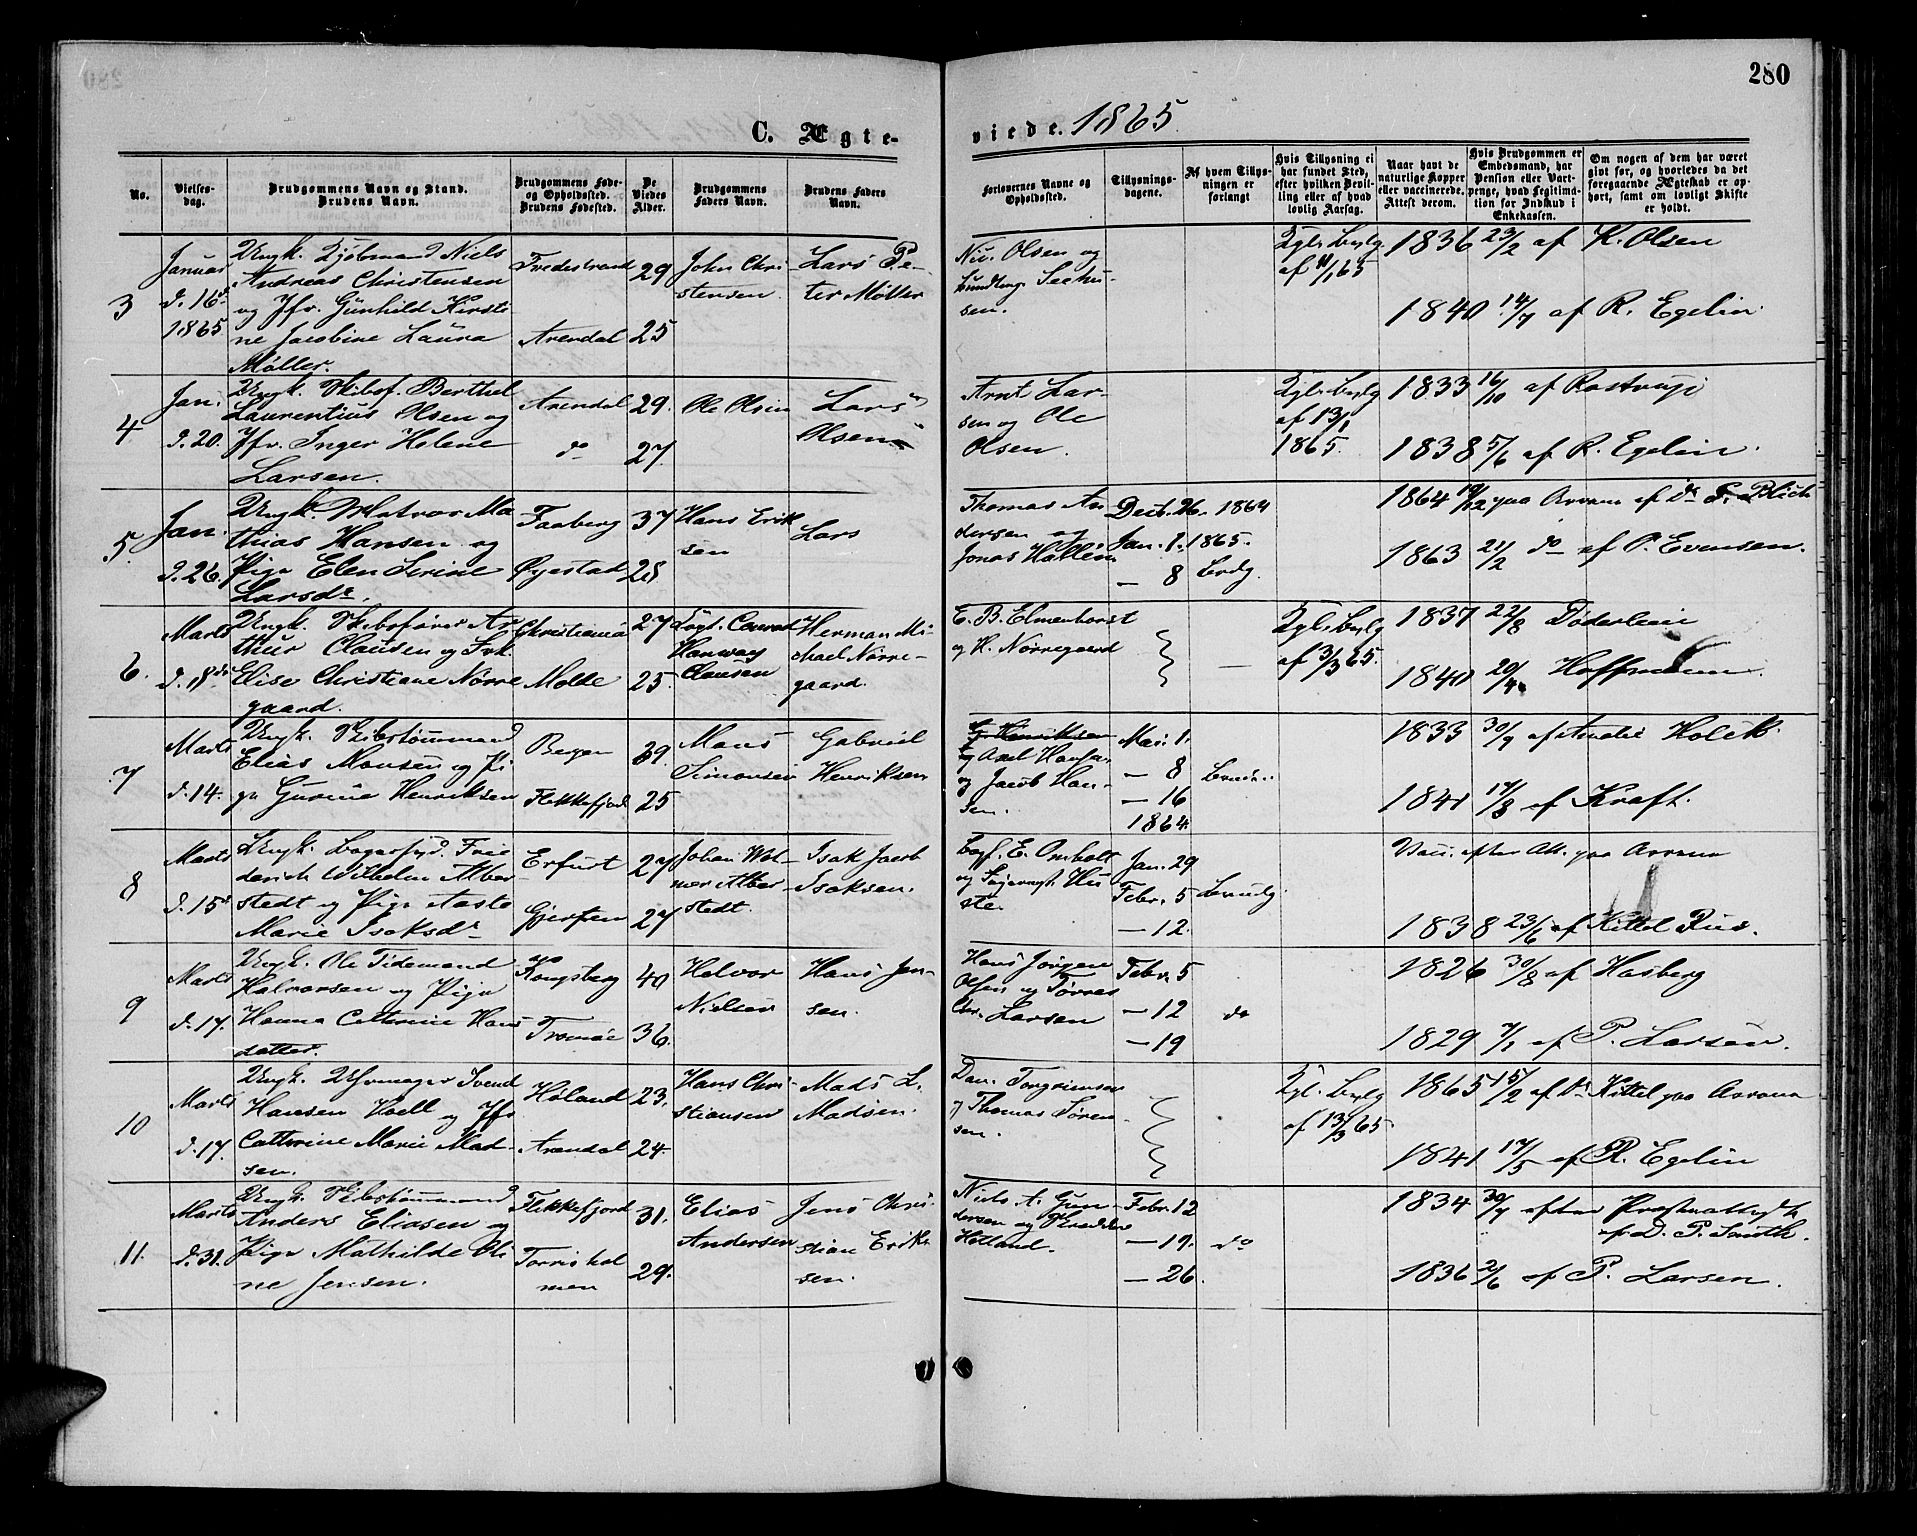 280
C. Ægte-
viede. 1865.
No.
Vielses-
dag.
Brudgommens Navn og Stand.
Brudens Navn.
Brudgommens Føde-
og Opholdssted.
Brudens Fødested.
De
Viedes
Alder.
Brudgommens
Faders Navn.
Brudens Faders
Navn.
Forlovernes Navne og
Opholdssted.
Tillysnings-
dagene.
Af hvem Tillys-
ningen er
forlangt
Hvis Tillysning ei
har fundet Sted,
efter hvilken Bevil-
ling eller af hvad
lovlig Aarsag.
Naar havt de
naturlige Kopper
eller vaccinerede.
Attest derom.
Hvis Brudgommen er
Embedsmand, har
Pension eller Vart-
penge, hvad Legitima-
tion for Indskud i
Enkekassen.
Om nogen af dem har været
givt før, og hvorledes da det
foregaaende Ægteskab er op-
hørt, samt om lovligt Skifte
er holdt.
3
Januar
d. 16d
1865
Ungk. Kjøbmand Niels
Andreas Christensen
og Jfr. Gunhild Kirsti-
ne Jacobine Laura
Møller.
Tvedestrand
Arendal
29
25
John Chri-
stensen.
Lars Pe-
ter Møller
Olsen og
sen.
Kgl. Bevlg
af 11/1 65
1836 23/2 af K. Olsen
1840 14/7 af R. Egelin.
4
Jan.
d. 20.
Ungk. Skibsf. Berthel
Laurentius Olsen og
Jfr. Inger Helene
Larsen.
Arendal
do
29.
27.
Ole Olsen
Lars
Olsen
Arnt Lar-
sen og Ole
Olsen.
Kgl. Bevlg
af 13/1
1865.
1833 16/10 af Rostrup
1838 5/6 af R. Egelin.
5.
Jan.
d. 26.
Ungk. Matros Ma
thias Hansen og
Pige Elen Serine
Larsdr.
Faaberg
Øyestad
37
28
Hans Erik
sen
Lars
Thomas An
dersen og
Jonas
Decb. 26. 1864
Jan. 1. 1865.
— 8 Brdg.
1864 19/12 paa Arrana af Dr Blich
1863 21/2 do af P. Evensen.
6.
Marts
d. 18de
Ungk. Skibsfører Ar
thur Clausen og Frk.
Elise Christiane Nørre
gaard.
Christiania
Molde
27
25.
Conrad
Hanway
Clausen
Herman Mi-
chael Nørre-
gaard.
E. B. Elmenhorst
og H. Nørregaard
—
Kgl. Bevlg
af 3/3 65.
1837 22/8 Døderlein
1840 20/4 Hoffmann.
7
Marts
d. 14.
Ungk. Skibstømmermand
Elias Monsen og Pi
ge Gurine Henriksen
Bergen
Flekkefjord
39.
25
Mons
Simonsen
Gabriel
Henriksen
G. Henriksen
og Axel Hansen
og Jacob Han-
sen.
Mai. 1.
— 8
— 16
1864.
1833 30/9 af Holck.
1841 17/8 af Kraft.
8
Marts
d. 15d
Ungk. Bagersvd. Frie
derich Wilhelm Alber
stedt og Pige Aaste
Marie Isaksdr
Erfurt
Gjerstad
27
27
Johan Wol-
mer Alber
stedt.
Isak Jacob
Isaksen.
E. Omholt
Jan. 29
Febr. 5
— 12.
Vacc. efter Att. paa Arrana
1838 23/6 af Kittel Ruis.
9
Marts
d. 17.
Ungk. Ole Tidemand
Halvorsen og Pige
Hanna Cathrine Hans
datter.
Kongsberg
Tromøe
40
36.
Halvor
Nielsen
Hans Jen-
sen.
Hans Jørgen
Olsen og Tørres
Chr. Larsen
Febr. 5
— 12
— 19
do
1826 30/8 af Hasberg
1829 7/1 af P. Larsen.
10
Marts
d. 17.
Ungk. Uhrmager Svend
Hansen Voell og Jfr
Cathrine Marie Mad-
sen.
Høland
Arendal
23.
24.
Hans Chri-
stiansen
Mads L.
Madsen.
Dan. Torgrimsen
og Thomas Søren-
sen.
Kgl. Bevlg
af 13/3 65.
1865 15/2 af Dr Kittel paa Arrana
1841 17/5 af R. Egelin
11.
Marts
d. 31.
Ungk. Skibstømmermand
Anders Eliasen og
Pige Mathilde Oli
ne Jensen.
Flekkefjord
Torrishol
men
31.
29.
Elias
Andersen
Jens Chris-
stian Erik-
sen.
Niels A. Gun
dersen og
Holland.
Febr. 12
— 19.
— 26.
do
1834 30/9 efter Præsteattest
af D. P. Smith.
1836 2/6 af P. Larsen.